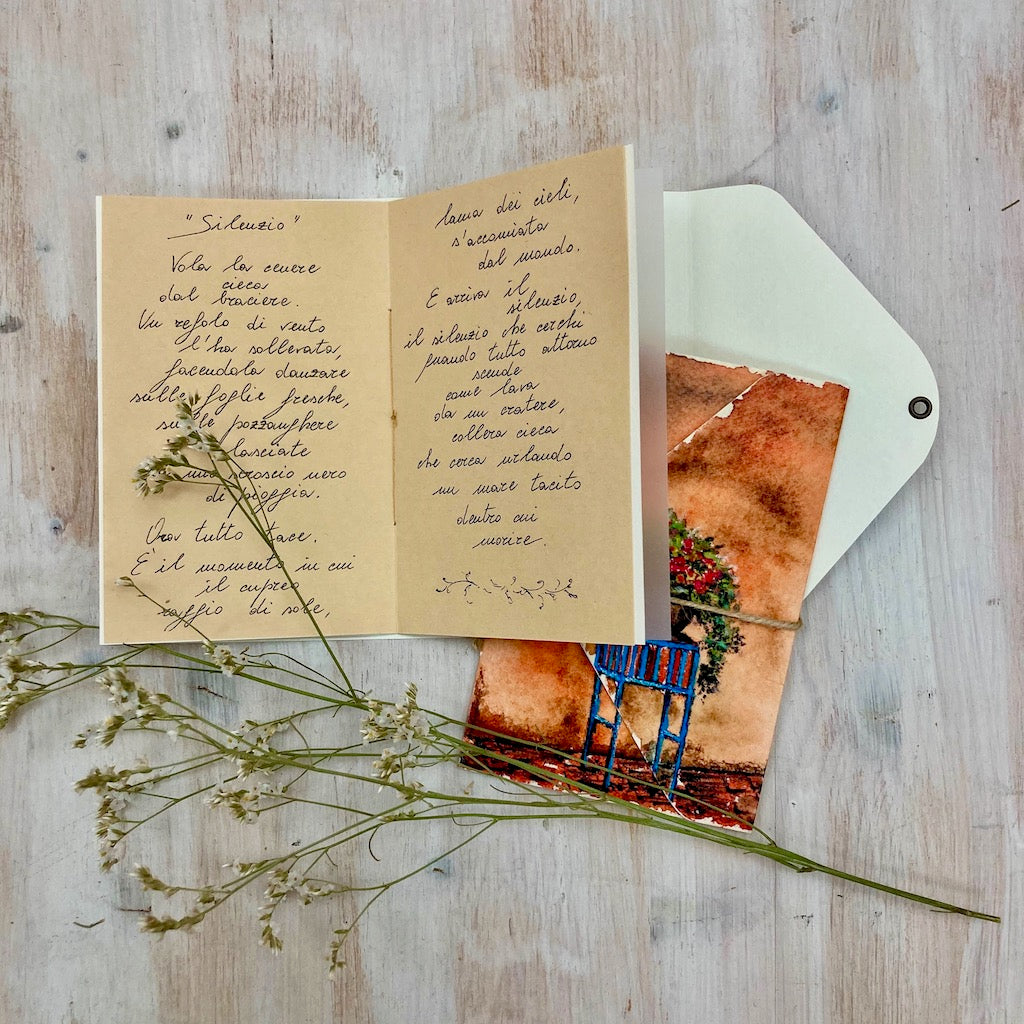 "Silenzio"
Vola la cenere
cieca
dal braciere.
Un refolo di vento
l'ha sollevata,
facendola danzare
sulle foglie fresche,
sulle pozzanghere
lasciate
uno scroscio nero
di pioggia.
Ora tutto tace.
È il momento in cui
il cupreo
raggio di sole,
lama dei cieli,
s'accomiata
dal mondo.
E arriva il
silenzio,
il silenzio che cerchi
quando tutto attorno
scende
come lava
da un cratere,
collera cieca
che cerca urlando
un mare tacito
dentro cui
morire.